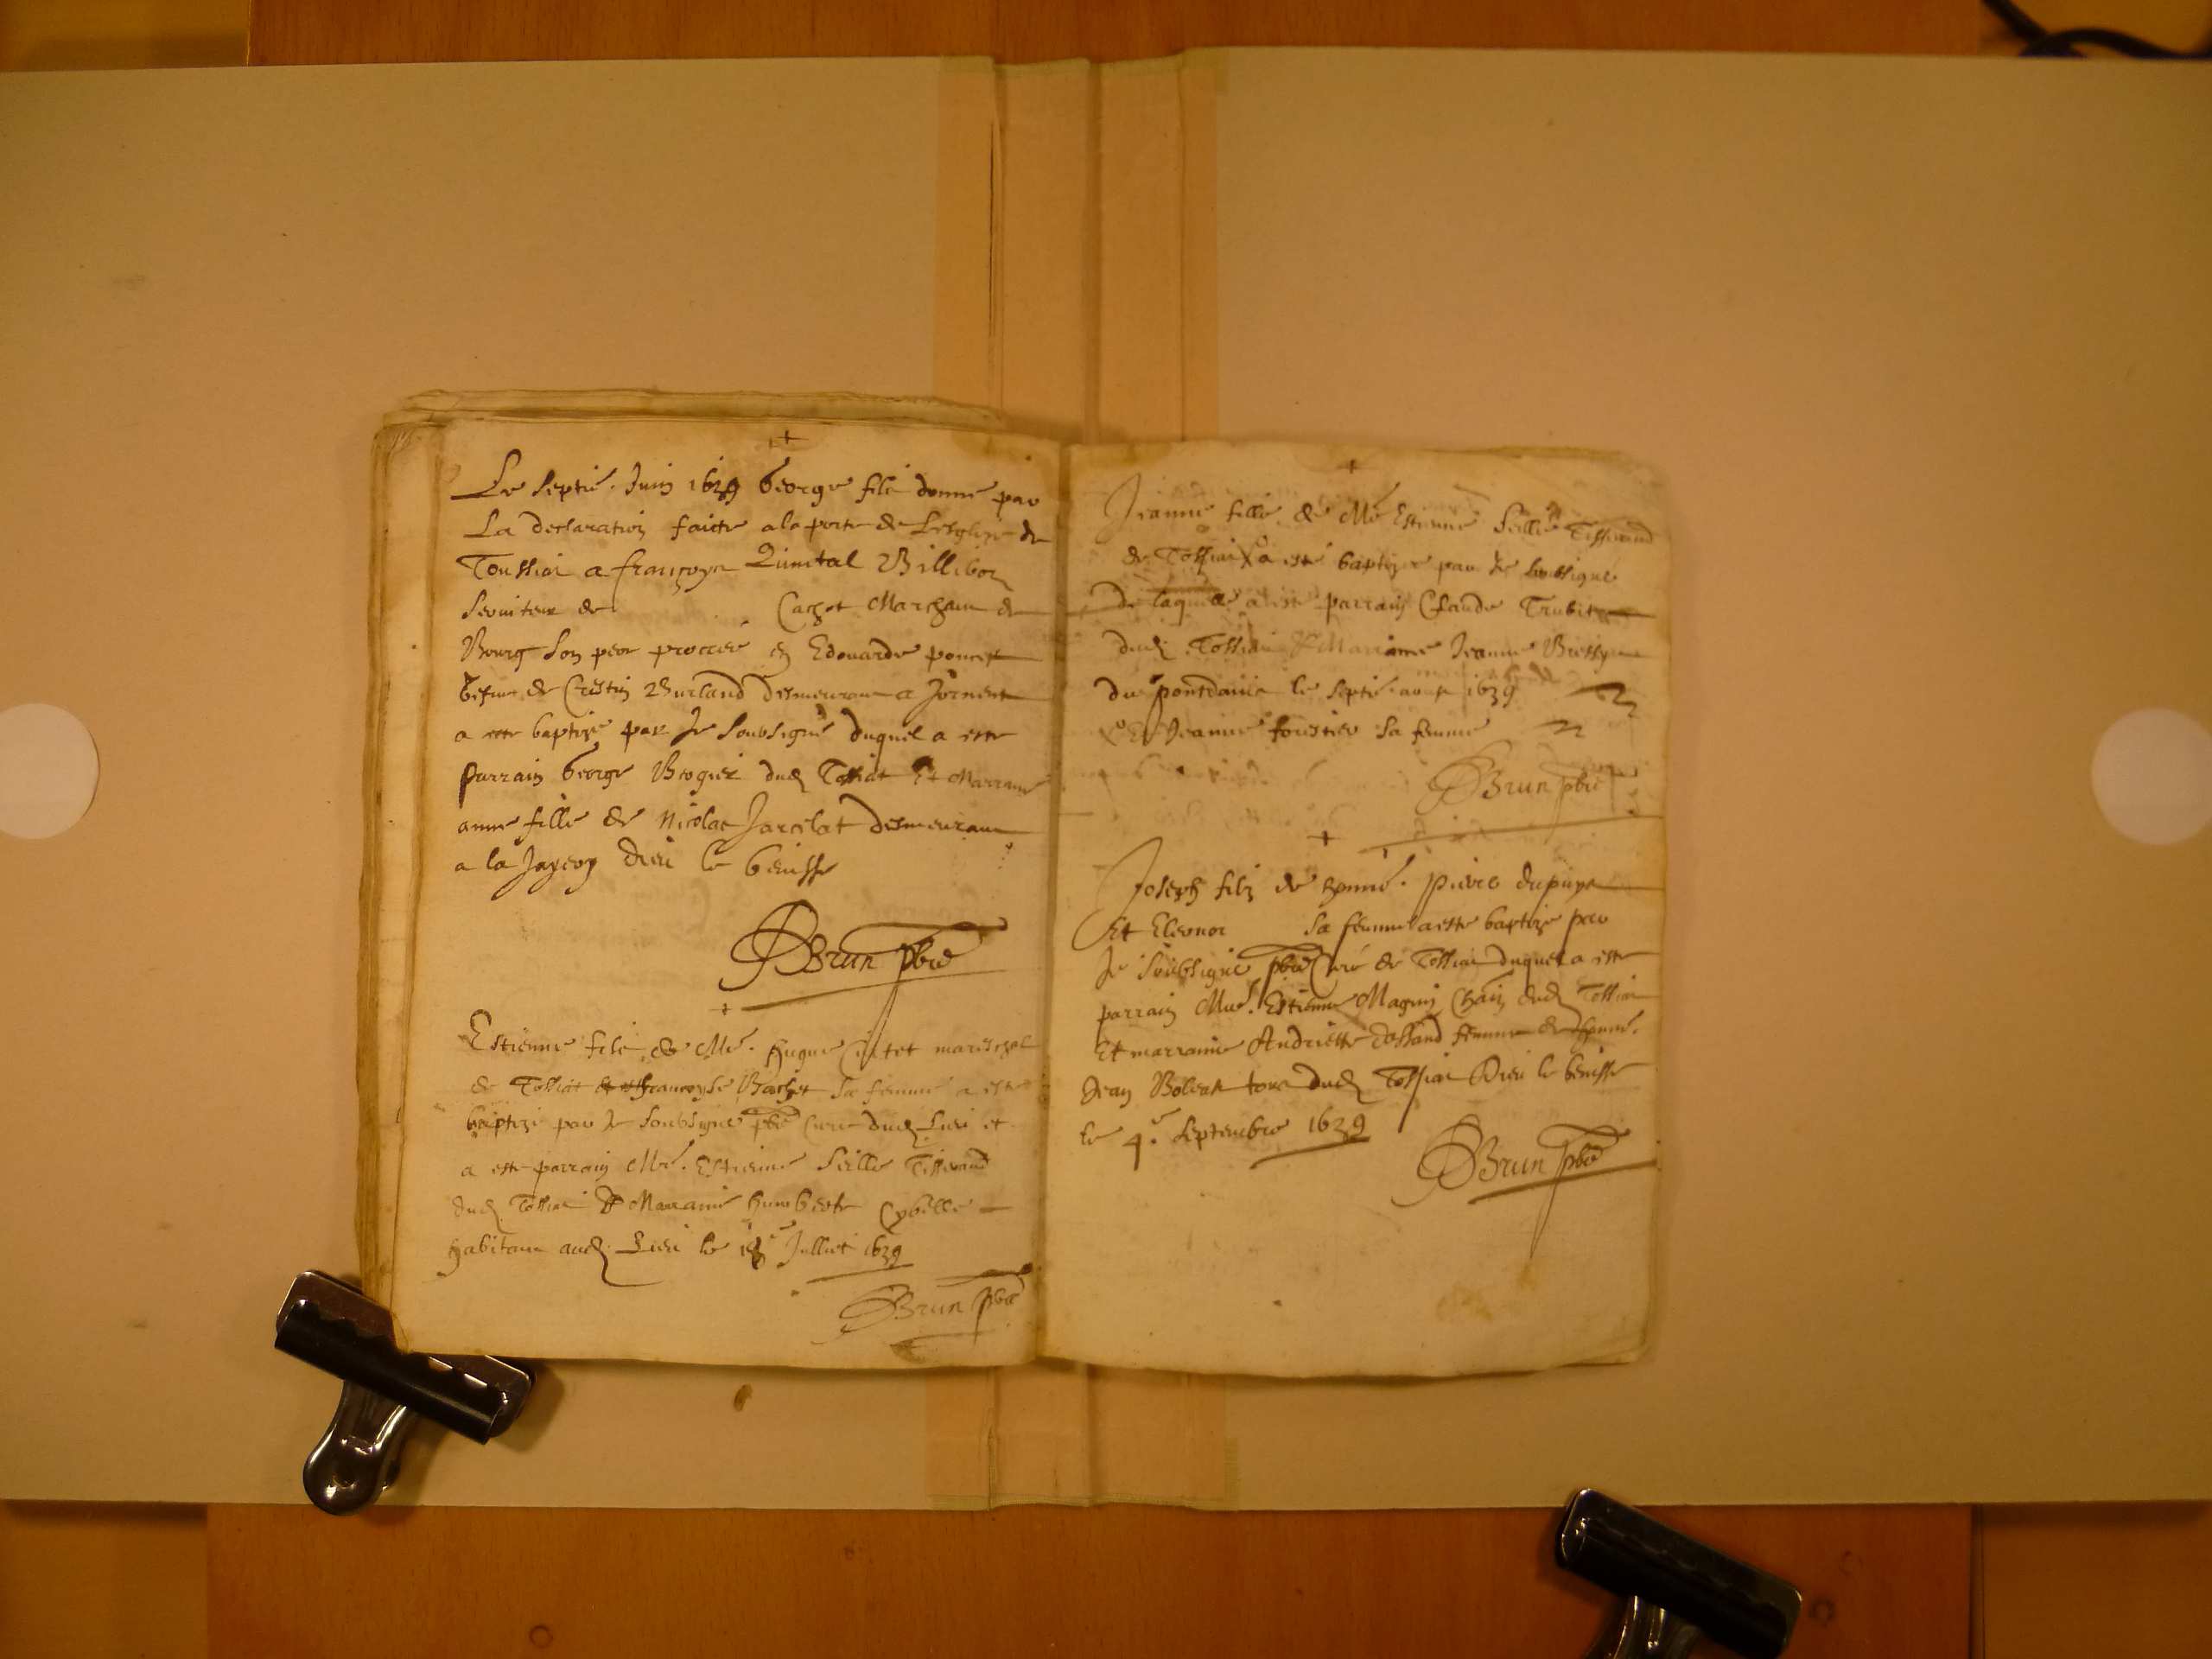 +
Le septie. Juin 1639 George filz donné par
La declaration faicte a la porte de Lesglize de
Toussia a françoys Quintal Billiboz
serviteur de Cachet Marchant de
Bourg son pere procreé en Edouarde poncet
vefve de Cristin Burland desmeurant a Jornent
a este baptizé par Je soubsigné duquel a este
parrain George Brogier dud Tossiat Et Marraine
anne fille de Nicolas Jarcelat desmeurant
a la Dieu le benisse
Brun pbre
+
Estienne filz de Me. Hugue mareschal
de Tossiat francoyse Bachet sa femme a este
baptizé par Je soubsigné pbre Curé dud Lieu et
a este parrain Me. Estienne Seille Tisserand
dud Tossia Et Marraine humberte Cybelle
habitant aud Lieu le 18e Julliet 1639
Brun pbre
+
Jeanne fille de Me Estienne Seille Tisserand
de Tossiat X a este baptizée par Je soubsigné
de laquelle a este parrain Claude
dud Tossiat Et Marraine Jeanne
du pontdains le septie. aoust 1639
X Et Jeanne fourtier sa femme
Brun pbre
+
Joseph filz de honne. pierre dupuys
Et Eleonor sa femme a este baptizé par
Je soubsigné pbre Curé de Tossiat duquel a este
parrain Mre. Estienne Magnin dud Tossiat
Et marraine Andriette femme de honne.
Jean dud Tossiat Dieu le benisse
le 4e. Septembre 1639
Brun pbre